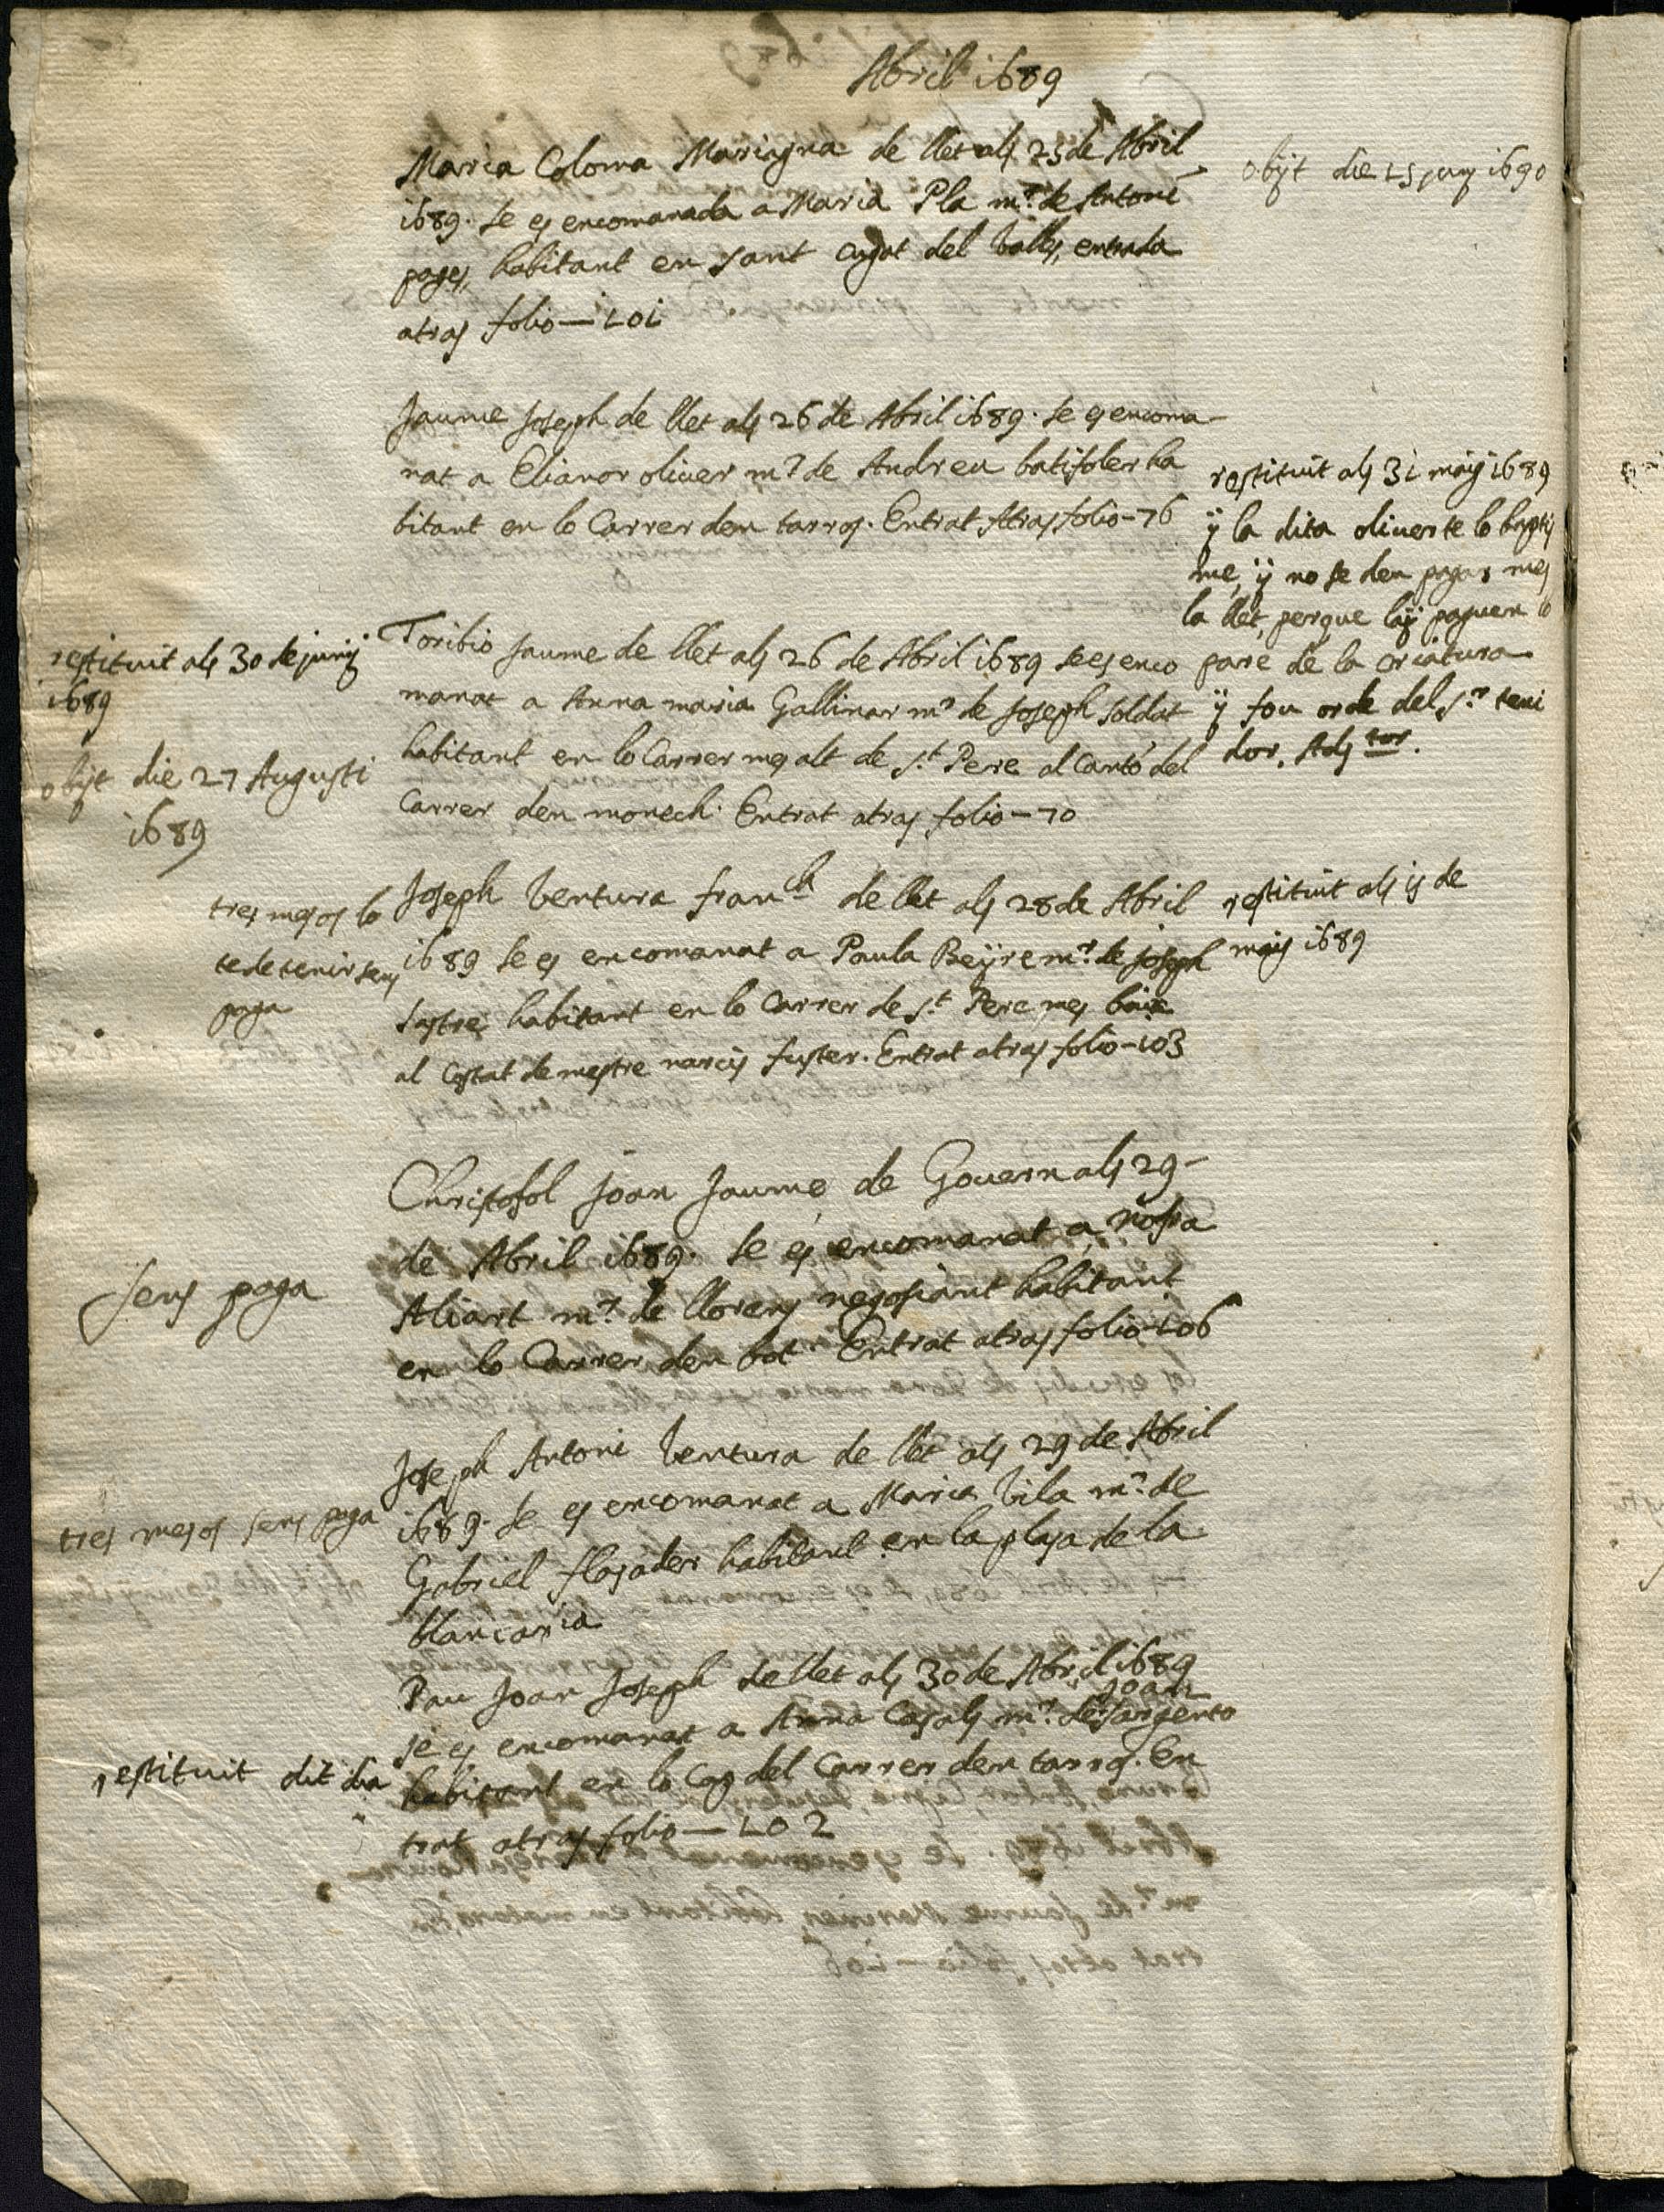 Abril 1689
Maria Coloma Mariagna de llet als 25 de Abril
1689. se es encomanada a Maria Pla mr. de Antoni
pages, habitant en sant cugat del Valles, entrada
atras folio — 101
obijt die 15 juny 1690
Jaume Joseph de llet als 26 de Abril 1689. se es encoma-
nat a Elianor oliuer mr de Andreu batifoler ha
bitant en lo Carrer den tarros. Entrat Atras folio - 76
restituit als 31 maÿ 1689
ÿ la dita oliuer te lo baptis
me, ÿ no se deu pagar mes
la llet, perque laÿ paguen lo
pare de la criatura
ÿ fou orde del sr. teni
dor. Adstor.
Toribio Jaume de llet als 26 de Abril 1689 se es enco
manat a Anna maria Gallinar mr de Joseph soldat
habitant en lo Carrer mes alt de st. Pere al Cantó del
Carrer den monech. Entrat atras folio - 70
restituit als 30 de junÿ
1689
obijt die 27 Augusti
1689
Joseph Ventura franch de llet als 28 de Abril
1689 se es encomanat a Paula Beÿre mr. de joseph
sastre, habitant en lo Carrer de st. Pere mes baix
al Costat de mestre narcis fuster. Entrat atras folio - 103
tres mesos lo
te de tenir sens
paga
restituit als 15 de
maÿ 1689
Christofol Joan Jaume de Gouern als 29 -
de Abril 1689. se es encomanat a rosa
Aliart mr. de llorens negosiant habitant
en lo Carrer den bot. Entrat atras folio - 106
sens paga
Joseph Antoni Ventura de llet als 29 de Abril
1689. se es encomanat a Maria Vila mr. de
Gabriel flasader habitant en la plasa de la
blancaria
tres mesos sens paga
Pau Joan Joseph de llet als 30 de Abril 1689
se es encomanat a Anna Casals mr. de Joan sargento
habitant en lo Cap del Carrer den tarros. En
trat atras folio — 102
restituit dit dia